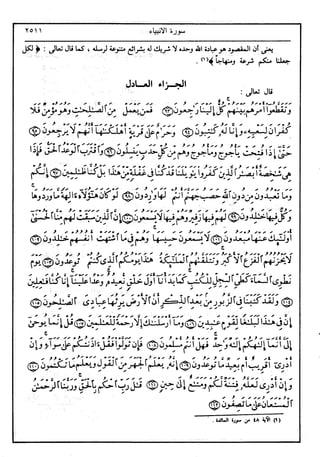 ٢٥١١
سورة الأنبياء
يعنى أن المقصود هو عبادة الله وحده لا شريك له بشرائع متنوعة لرسله ، كما قال تعالى : ﴿ لكل
جعلنا منكم شرعة ومنهاجاً ﴾(١) .
الجزاء العادل
قال تعالى :
وَتَقَطَّعُوٓا۟ أَمْرَهُم بَيْنَهُمْ ۖ كُلٌّ إِلَيْنَا رَٰجِعُونَ ﴿٩٣﴾ فَمَن يَعْمَلْ مِنَ ٱلصَّـٰلِحَـٰتِ وَهُوَ مُؤْمِنٌ فَلَا
كُفْرَانَ لِسَعْيِهِۦ وَإِنَّا لَهُۥ كَـٰتِبُونَ ﴿٩٤﴾ وَحَرَٰمٌ عَلَىٰ قَرْيَةٍ أَهْلَكْنَـٰهَآ أَنَّهُمْ لَا يَرْجِعُونَ ﴿٩٥﴾
حَتَّىٰٓ إِذَا فُتِحَتْ يَأْجُوجُ وَمَأْجُوجُ وَهُم مِّن كُلِّ حَدَبٍ يَنسِلُونَ ﴿٩٦﴾ وَٱقْتَرَبَ ٱلْوَعْدُ ٱلْحَقُّ فَإِذَا
هِىَ شَـٰخِصَةٌ أَبْصَـٰرُ ٱلَّذِينَ كَفَرُوا۟ يَـٰوَيْلَنَا قَدْ كُنَّا فِى غَفْلَةٍ مِّنْ هَـٰذَا بَلْ كُنَّا ظَـٰلِمِينَ ﴿٩٧﴾ إِنَّكُمْ
وَمَا تَعْبُدُونَ مِن دُونِ ٱللَّهِ حَصَبُ جَهَنَّمَ أَنتُمْ لَهَا وَٰرِدُونَ ﴿٩٨﴾ لَوْ كَانَ هَـٰٓؤُلَآءِ ءَالِهَةً مَّا وَرَدُوهَا
وَكُلٌّ فِيهَا خَـٰلِدُونَ ﴿٩٩﴾ لَهُمْ فِيهَا زَفِيرٌ وَهُمْ فِيهَا لَا يَسْمَعُونَ ﴿١٠٠﴾ إِنَّ ٱلَّذِينَ سَبَقَتْ لَهُم مِّنَّا ٱلْحُسْنَىٰٓ
أُو۟لَـٰٓئِكَ عَنْهَا مُبْعَدُونَ ﴿١٠١﴾ لَا يَسْمَعُونَ حَسِيسَهَا ۖ وَهُمْ فِى مَا ٱشْتَهَتْ أَنفُسُهُمْ خَـٰلِدُونَ ﴿١٠٢﴾
لَا يَحْزُنُهُمُ ٱلْفَزَعُ ٱلْأَكْبَرُ وَتَتَلَقَّىٰهُمُ ٱلْمَلَـٰٓئِكَةُ هَـٰذَا يَوْمُكُمُ ٱلَّذِى كُنتُمْ تُوعَدُونَ ﴿١٠٣﴾ يَوْمَ
نَطْوِى ٱلسَّمَآءَ كَطَىِّ ٱلسِّجِلِّ لِلْكُتُبِ ۚ كَمَا بَدَأْنَآ أَوَّلَ خَلْقٍ نُّعِيدُهُۥ ۚ وَعْدًا عَلَيْنَآ ۚ إِنَّا كُنَّا فَـٰعِلِينَ
﴿١٠٤﴾ وَلَقَدْ كَتَبْنَا فِى ٱلزَّبُورِ مِنۢ بَعْدِ ٱلذِّكْرِ أَنَّ ٱلْأَرْضَ يَرِثُهَا عِبَادِىَ ٱلصَّـٰلِحُونَ ﴿١٠٥﴾
إِنَّ فِى هَـٰذَا لَبَلَـٰغًا لِّقَوْمٍ عَـٰبِدِينَ ﴿١٠٦﴾ وَمَآ أَرْسَلْنَـٰكَ إِلَّا رَحْمَةً لِّلْعَـٰلَمِينَ ﴿١٠٧﴾ قُلْ إِنَّمَا يُوحَىٰٓ
إِلَىَّ أَنَّمَآ إِلَـٰهُكُمْ إِلَـٰهٌ وَٰحِدٌ ۖ فَهَلْ أَنتُم مُّسْلِمُونَ ﴿١٠٨﴾ فَإِن تَوَلَّوْا۟ فَقُلْ ءَاذَنتُكُمْ عَلَىٰ سَوَآءٍ ۖ وَإِنْ
أَدْرِىٓ أَقَرِيبٌ أَم بَعِيدٌ مَّا تُوعَدُونَ ﴿١٠٩﴾ إِنَّهُۥ يَعْلَمُ ٱلْجَهْرَ مِنَ ٱلْقَوْلِ وَيَعْلَمُ مَا تَكْتُمُونَ ﴿١١٠﴾
وَإِنْ أَدْرِى لَعَلَّهُۥ فِتْنَةٌ لَّكُمْ وَمَتَـٰعٌ إِلَىٰ حِينٍ ﴿١١١﴾ قَـٰلَ رَبِّ ٱحْكُم بِٱلْحَقِّ ۗ وَرَبُّنَا ٱلرَّحْمَـٰنُ
ٱلْمُسْتَعَانُ عَلَىٰ مَا تَصِفُونَ ﴿١١٢﴾
(١) الآية ٤٨ من سورة المائدة .